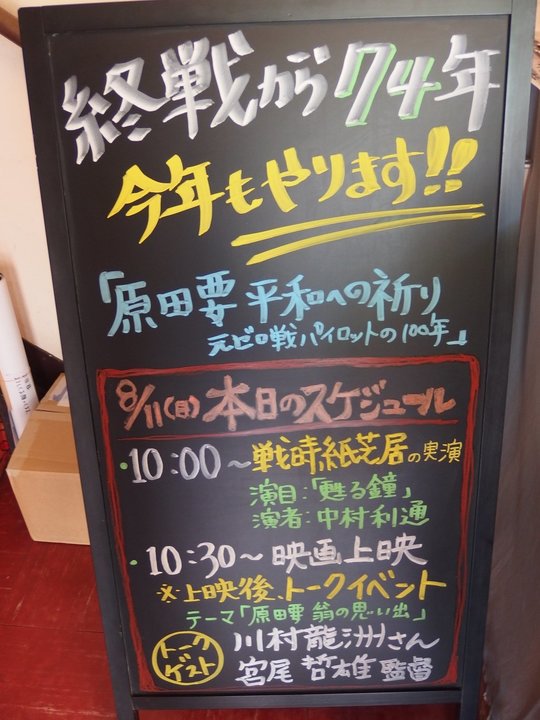 終戦から74年
今年もやります!!
「原田要 平和への祈り
元ゼロ戦パイロットの100年」
8/11(日) 本日のスケジュール
・10:00～戦時紙芝居の実演
演目:「甦る鐘」
演者:中村利通
・10:30～映画上映
※上映後、トークイベント
テーマ「原田要 翁の思い出」
トークゲスト
川村龍洲さん
宮尾哲雄監督